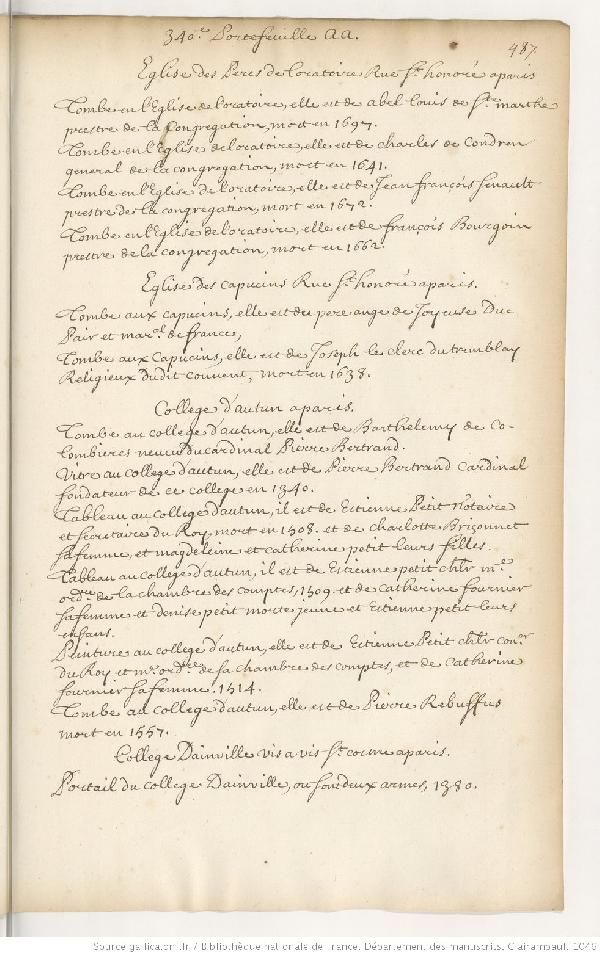 340.e Portefeuille aa.
487.
Eglise des Peres de loratoire Rue St. honoré aparis
Tombe en l'Eglise de loratoire, elle est de abel louis de Ste. marthe
prestre de la congregation, mort en 1697.
Tombe en l'Eglise de loratoire, elle est de charles de Condren
general de la congregation, mort en 1641.
Tombe en l'Eglise de loratoire, elle est de Jean françois Senault
prestre de la congregation, mort en 1672.
Tombe en l'Eglise de loratoire, elle est de françois Bourgoin
prestre de la congregation, mort en 1662.
Eglise des capucins Rue St. honoré aparis.
Tombe aux capucins, elle est du pere ange de Joyeuse Duc
Pair et mar.al de france,
Tombe aux Capucins, elle est de Joseph le clerc du tremblay
Religieux dudit couvent, mort en 1638.
College d'autun aparis.
Tombe au college d'autun, elle est de Barthelemy de Co-
lombieres neveu du cardinal Pierre Bertrand.
Vitre au college d'autun, elle est de Pierre Bertrand Cardinal
fondateur de ce college en 1340.
Tableau au college d'autun, il est de Estienne Petit Notaire
et secretaire du Roy, mort en 1508. et de charlotte Briçonnet
sa femme, et magdeleine et catherine petit leurs filles.
Tableau au college d'autun, il est de Estienne petit chlr. m.e
ord.re de la chambre des comptes, 1509. et de Catherine fournier
sa femme et denise petit morte jeune et Estienne petit leurs
enfans.
Peinture au college d'autun, elle est de Estienne Petit chlr. con.er
du Roy et m.e ord.re de sa chambre des comptes, et de Catherine
fournier sa femme. 1514.
Tombe au college d'autun, elle est de Pierre Rebuffus
mort en 1557.
College Dainville vis a vis St. cosme aparis.
Portail du college Dainville, ou sont deux armes, 1380.
Source gallica.bnf.fr / Bibliothèque nationale de France. Département des manuscrits. Clairambault 1046